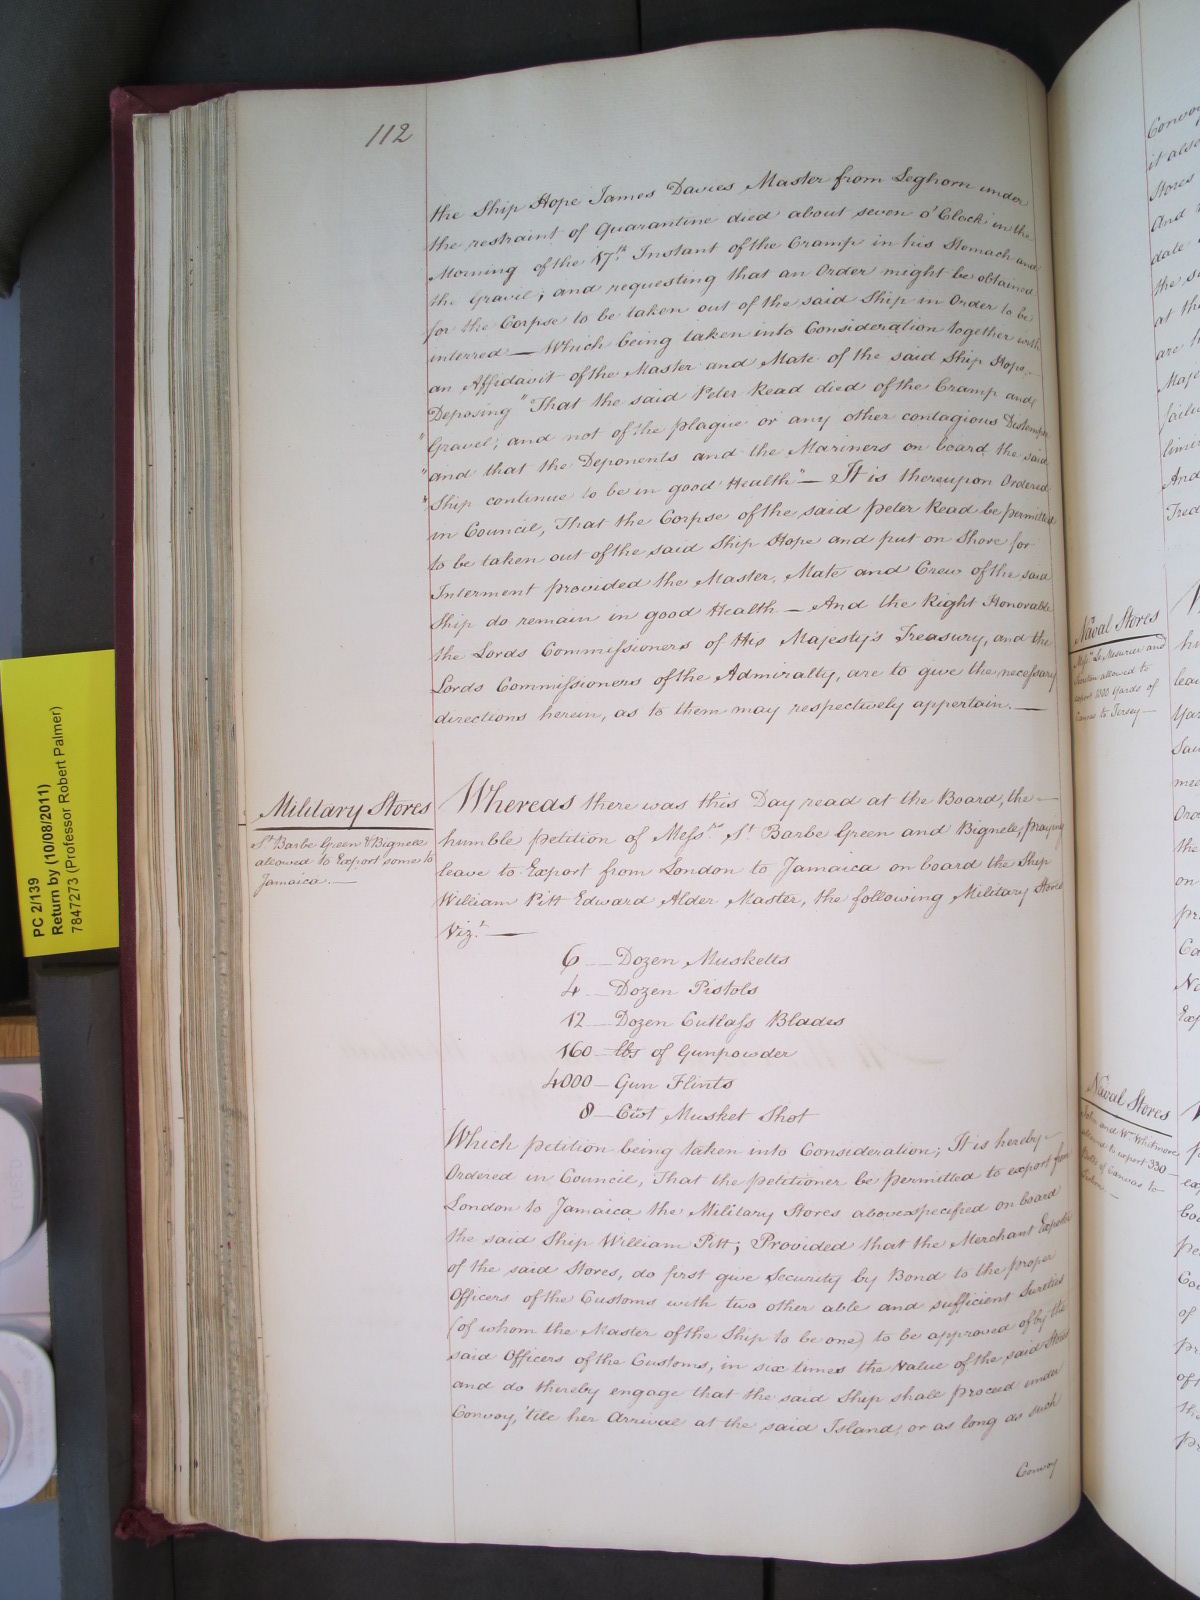 112
the Ship Hope James Davies Master from Leghorn under
the restraint of Quarantine died about seven o'Clock in the
Morning of the 17th. Instant of the Cramp in his Stomach and
the Gravel; and requesting that an Order might be obtained
for the Corpse to be taken out of the said Ship in Order to be
interred — Which being taken into Consideration together with
an Affidavit of the Master and Mate of the said Ship Hope,
Deposing "That the said Peter Read died of the Cramp and
"Gravel; and not of the plague or any other contagious Distemper
"and that the Deponents and the Mariners on board the said
"Ship continue to be in good Health" — It is thereupon Ordered
in Council, That the Corpse of the said Peter Read be permitted
to be taken out of the said Ship Hope and put on Shore for
Interment provided the Master, Mate and Crew of the said
Ship do remain in good Health — And the Right Honorable
the Lords Commissioners of His Majesty's Treasury, and the
Lords Commissioners of the Admiralty, are to give the necessary
directions herein, as to them may respectively appertain. —
Military Stores
St. Barbe Green & Bignell
allowed to Export some to
Jamaica. —
Whereas there was this Day read at the Board, the —
humble petition of Messrs. St. Barbe Green and Bignell, praying
leave to Export from London to Jamaica on board the Ship
William Pitt Edward Alder Master, the following Military Stores
Vizt. —
6 — Dozen Musketts
4 — Dozen Pistols
12 — Dozen Cutlass Blades
160 — lbs of Gunpowder
4000 — Gun Flints
8 — Cwt Musket Shot
Which petition being taken into Consideration; It is hereby —
Ordered in Council, That the petitioner be permitted to export from
London to Jamaica the Military Stores abovespecified on board
the said Ship William Pitt; Provided that the Merchant Exporter
of the said Stores, do first give Security by Bond to the proper
Officers of the Customs with two other able and sufficient Sureties
(of whom the Master of the Ship to be one) to be approved of by the
said Officers of the Customs, in six times the Value of the said Stores
and do thereby engage that the said Ship shall proceed under
Convoy, 'till her Arrival at the said Island, or as long as such
Convoy
PC 2/139
Return by (10/08/2011)
7847273 (Professor Robert Palmer)
Naval Stores
Messrs. Le Mesurier and
allowed to
export 1000 Yards of
Canvas to Jersey —
Naval Stores
John and Wm. Whitmore
allowed to export 330
Bolts of Canvas to